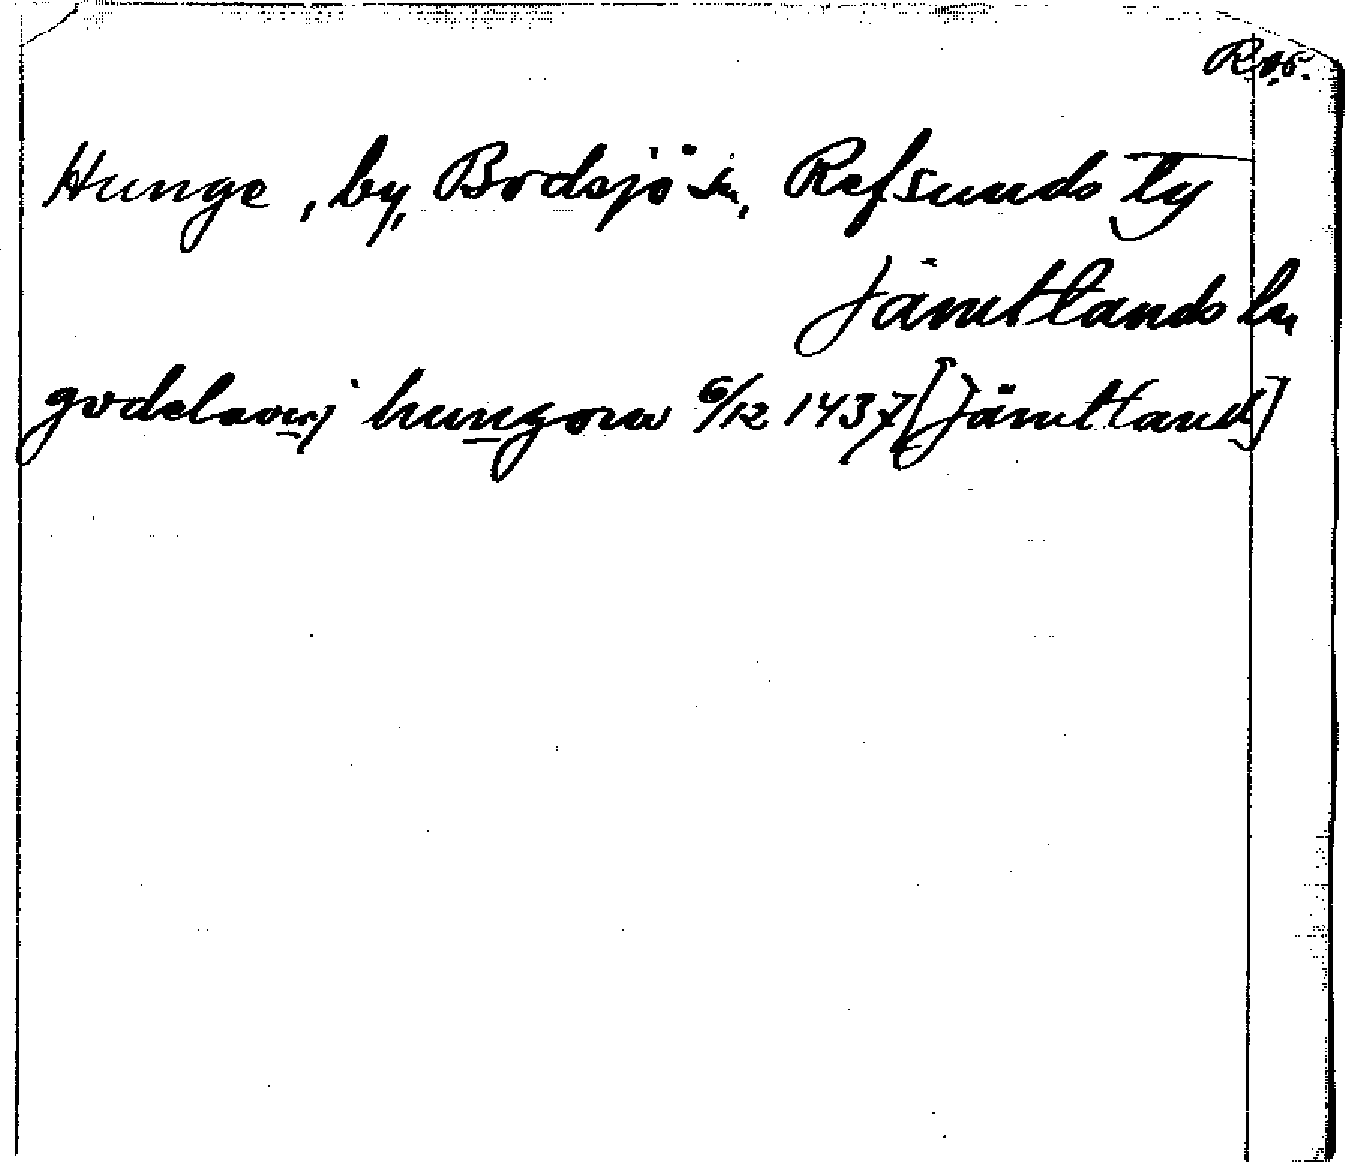 Hunge, by, Bodsjö sn, Refsunds tg
Jämtlands ln
i hungom 6/12 1437 [Jämtland]